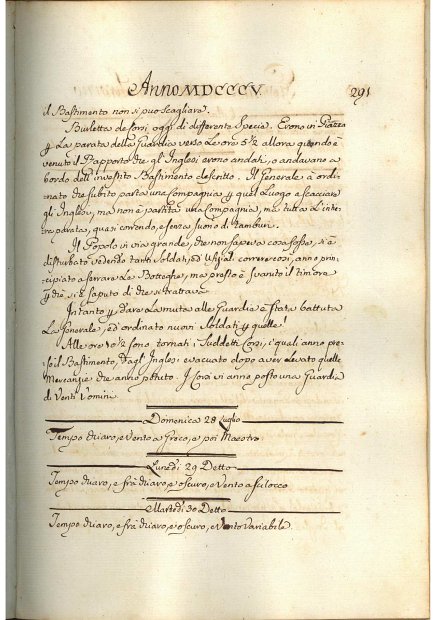 Anno MDCCCV. 291
il Bastimento non si può scagliara.
Burletta de Corsi oggi di differenta Specie. Erono in Piazza
p La parata della Guardia verso Le ore 5½ allora quando è
venuto il Rapporto che gli Inglesi erono andati, o andavano a
bordo dell'investito Bastimento descritto. Il Generale à ordi-
nato che subito parta una Compagnia p quel Luogo a scacciare
gli Inglesi, ma non è partita una Compagnia, ma tutta L'inte-
ra parata, quasi correndo, e senza suono di tamburi.
Il Popolo in via grande, che non sapeva cosa fosse, si è
disturbato vedendo tanti Soldati, ed Uffiziali correre così, anno prin-
cipiato a serrare Le Botteghe, ma presto è svanito il timore
p che si è saputo di che si trattava.
Intanto p dare La muta alle Guardia è stata battuta
La Generale, ed ordinato nuovi Soldati p quelle.
Alle ore 10½ sono tornati i Suddetti Corsi, i quali anno pre-
so il Bastimento, dagl'Inglesi evacuato dopo aver Levato quelle
Mercanzie che anno potuto. I Corsi vi anno posto una Guardia
di Venti Uomini.
Domenica 28 Luglio
Tempo chiaro, e Vento a Greco, e poi Maestro
Lunedi 29 Detto
Tempo chiaro, e frà chiaro, e oscuro, e Vento a Scilocco
Martedi 30 Detto
Tempo chiaro, e frà chiaro, e oscuro, e Vento Variabile.